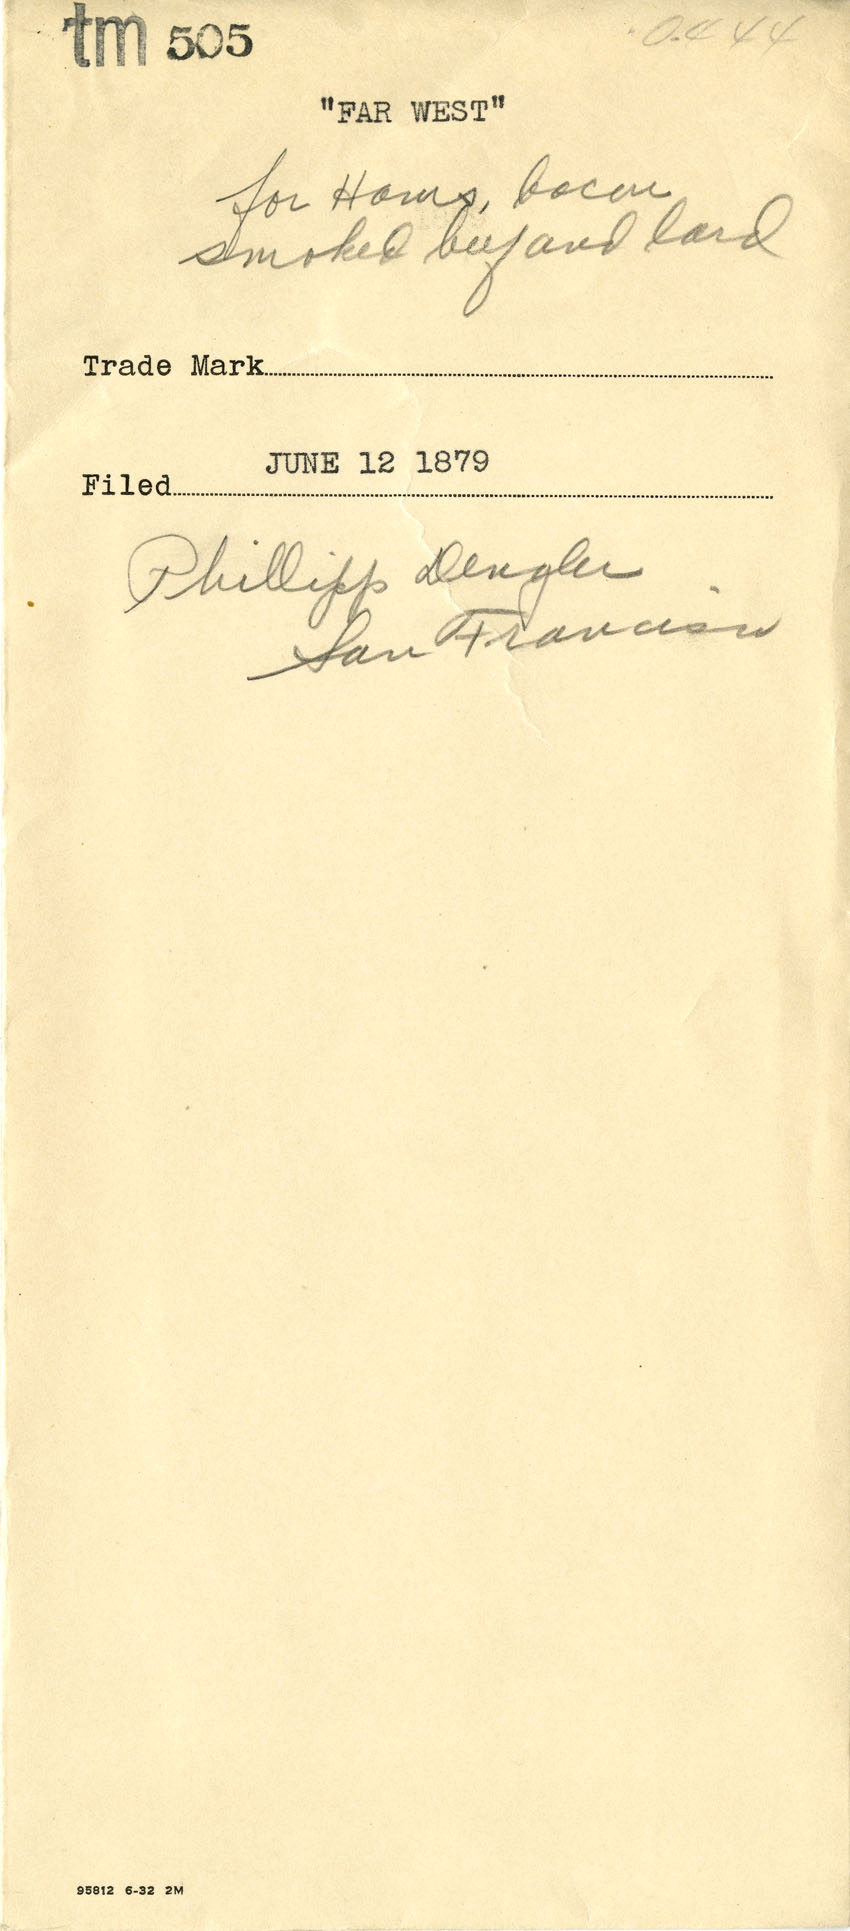 tm 505
"FAR WEST"
for Hams, bacon
smoked beef and lard
Trade Mark
JUNE 12 1879
Filed
Phillipp Dengler
San Francisco
95812 6-32 2M